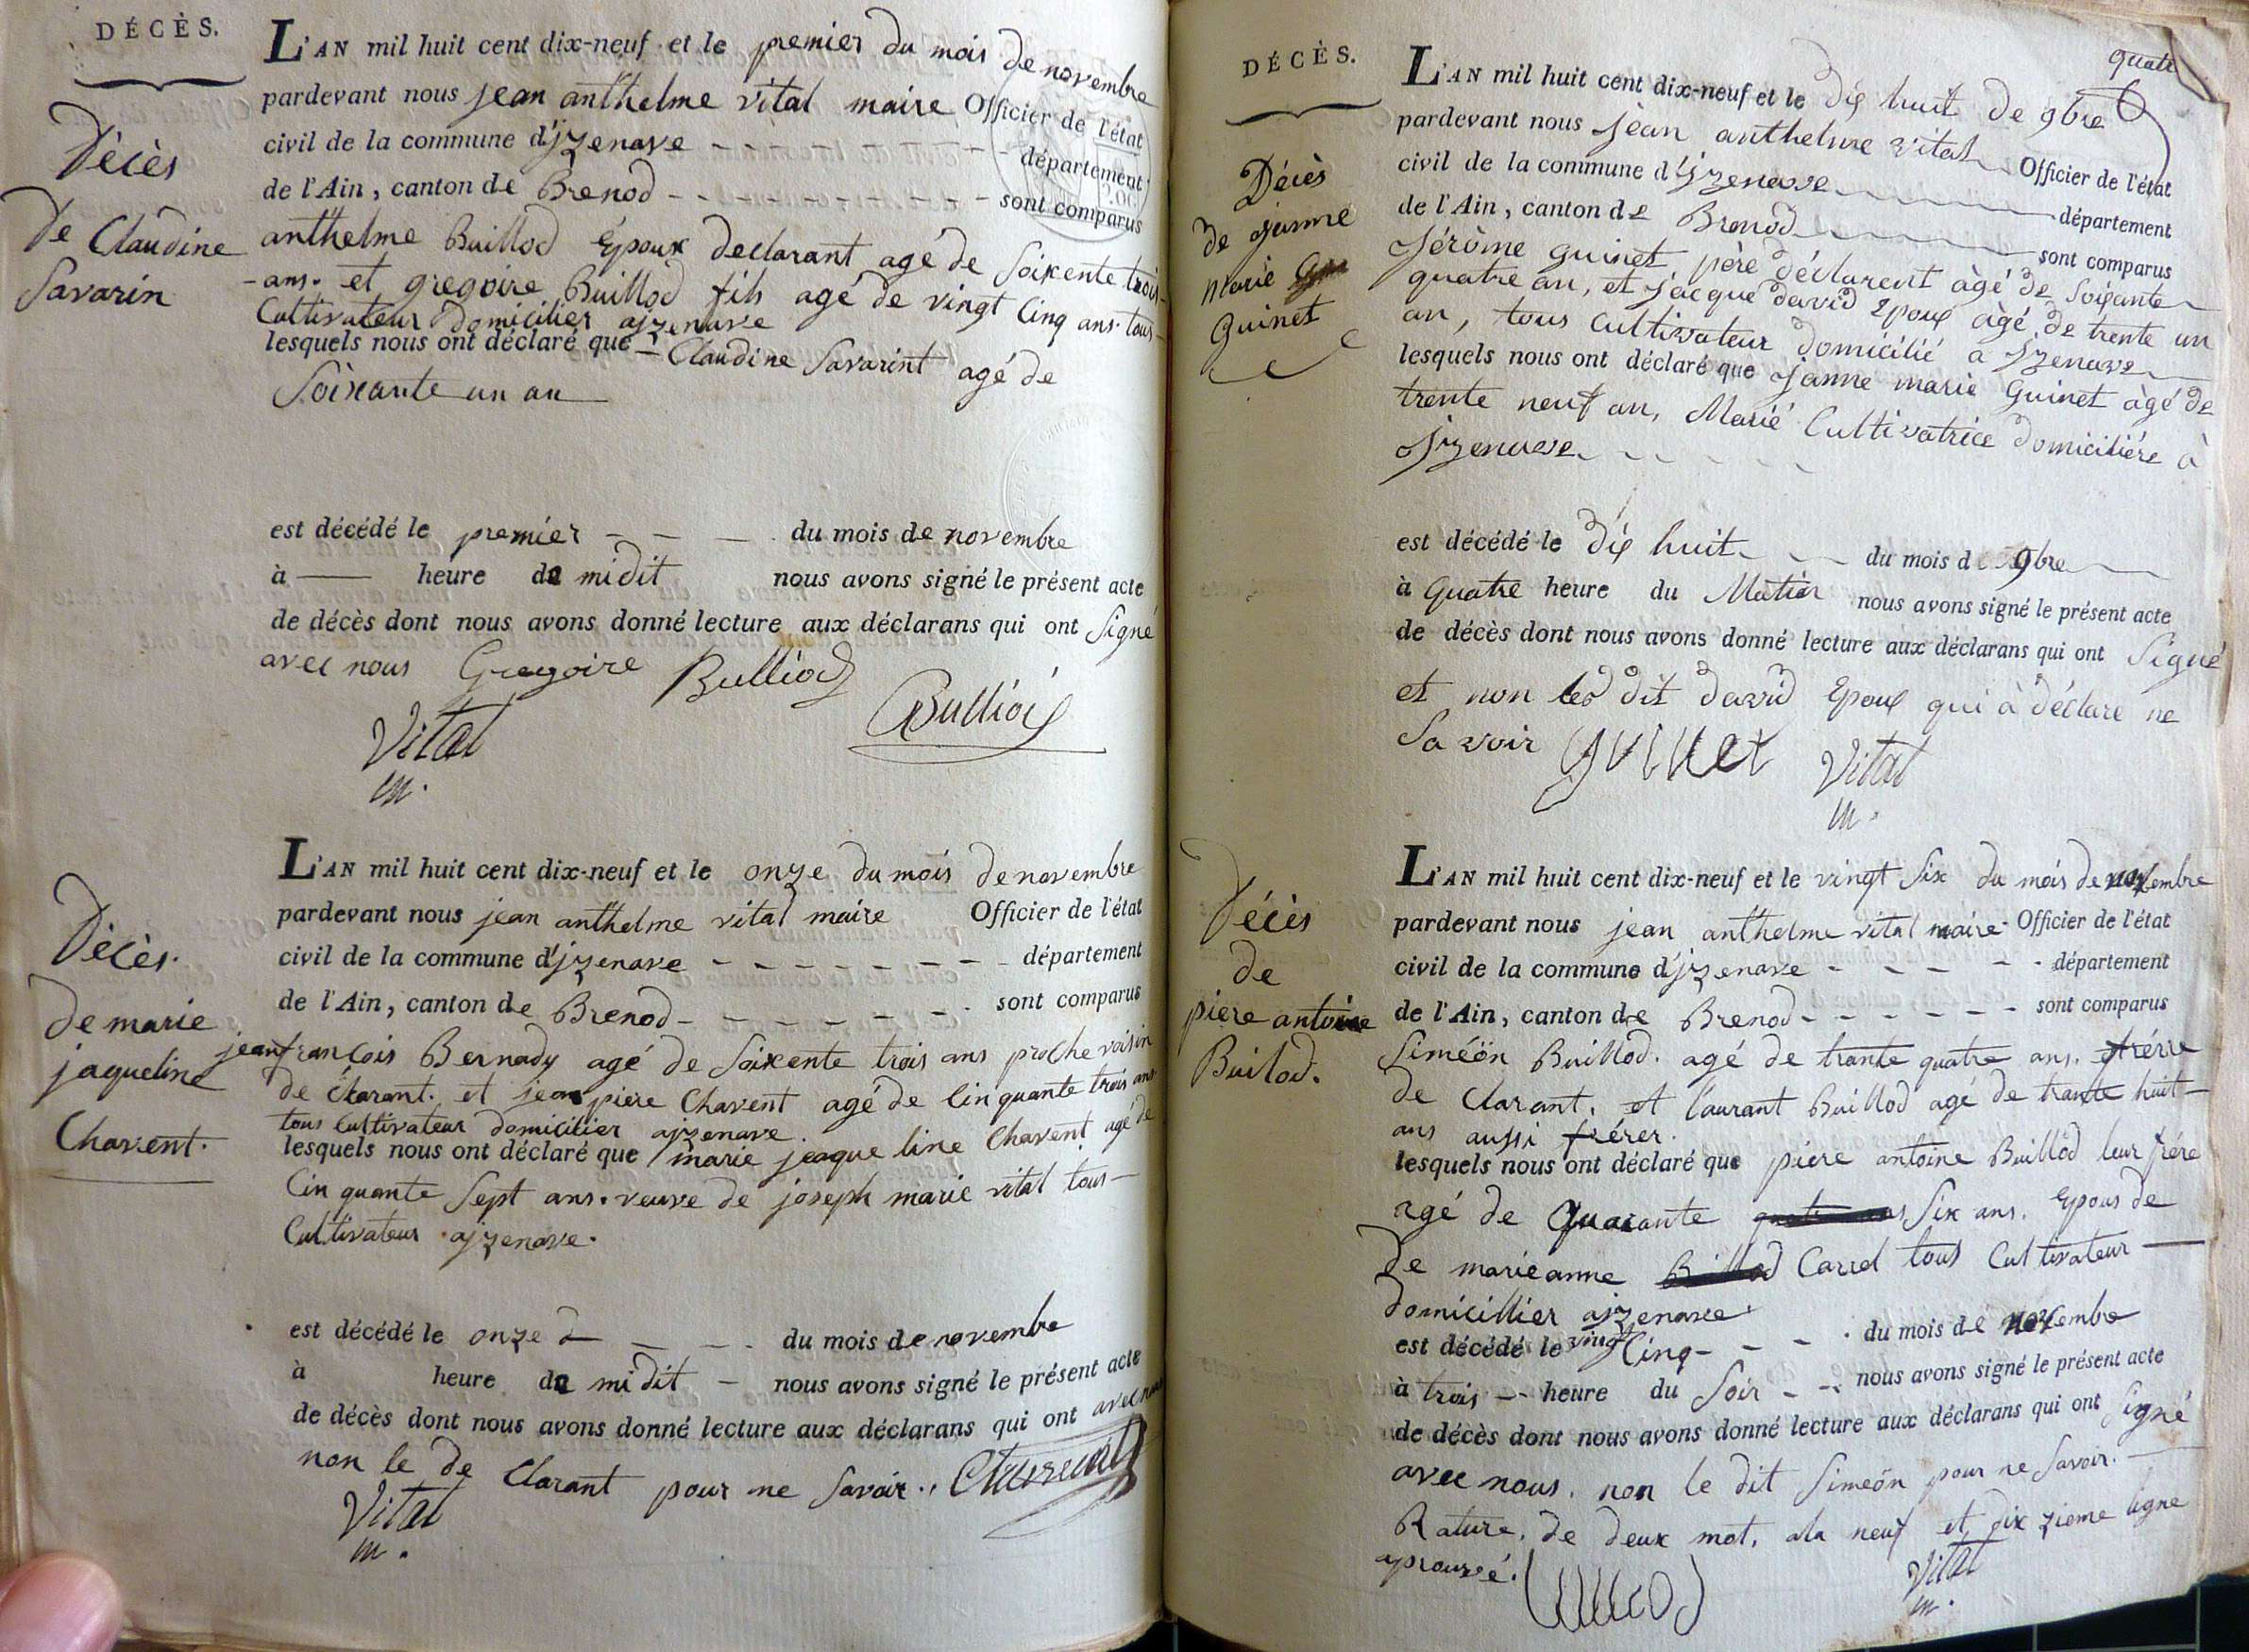 DÉCÈS.
Décès
de Claudine
Savarin
L'AN mil huit cent dix-neuf et le premier du mois de novembre
pardevant nous jean anthelme vital maire Officier de l'état
civil de la commune d'jzenave département
de l'Ain, canton de Brenod sont comparus
anthelme Buillod Époux declarant agé de Soixente trois
ans. et gregoire Buillod fils agé de vingt Cinq ans. tous
Cultivateur domicilier ajzenave
lesquels nous ont déclaré que Claudine Savarint agé de
Soixante un an
est décédé le premier du mois de novembre
à heure de midit nous avons signé le présent acte
de décès dont nous avons donné lecture aux déclarans qui ont Signé
avec nous Gregoire Bulliod
Bulliod
Vital
m.
Décès.
de marie
jaqueline
Chavent.
L'AN mil huit cent dix-neuf et le onze du mois de novembre
pardevant nous jean anthelme vital maire Officier de l'état
civil de la commune d'jzenave département
de l'Ain, canton de Brenod sont comparus
jean francois Bernady agé de Soixente trois ans proche voisin
de Clarant. et jean piere Chavent agé de Cinquante trois ans
tous Cultivateur domicilier ajzenave.
lesquels nous ont déclaré que marie jeaque line Chavent agé de
Cinquante Sept ans. veuve de joseph marie vital tous
Cultivateur ajzenave.
est décédé le onze du mois de novembre
à heure de midit nous avons signé le présent acte
de décès dont nous avons donné lecture aux déclarans qui ont avec nous
non le de Clarant pour ne Savoir.
Vital
m.
DÉCÈS.
quatre
Décès
de janne
Marie
Guinet
L'AN mil huit cent dix-neuf et le dix huit de 9bre
pardevant nous jean anthelme vital Officier de l'état
civil de la commune d'jzenave département
de l'Ain, canton de Brenod sont comparus
Jérôme guinet père déclarent àgé de Soixante
quatre an, et jacque david Epoux àgé de trente un
an, tous Cultivateur domicilié a jzenave
lesquels nous ont déclaré que janne marie Guinet àgé de
trente neuf an, Marié Cultivatrice domiciliére à
jzenave
est décédé le dix huit du mois de 9bre
à Quatre heure du Matin nous avons signé le présent acte
de décès dont nous avons donné lecture aux déclarans qui ont Signé
et non led dit david Epoux qui à déclare ne
Savoir guinet Vital
m.
Décès
de
piere antoine
Builod.
L'AN mil huit cent dix-neuf et le vingt Six du mois de novembre
pardevant nous jean anthelme vital maire Officier de l'état
civil de la commune d'jzenave département
de l'Ain, canton de Brenod sont comparus
Siméön Buillod. agé de trante quatre ans. frérre
de Clarant. et laurant Buillod agé de trante huit
ans aussi frérer.
lesquels nous ont déclaré que piere antoine Buillod leur frére
agé de Quarante Six ans. Epous de
de marieanne Carrel tous Cultivateur
domicillier ajzenave
est décédé le vingt Cinq du mois de novembre
à trois heure du Soir nous avons signé le présent acte
de décès dont nous avons donné lecture aux déclarans qui ont Signé
avec nous. non le dit Simeön pour ne Savoir.
Rature, de deux mot, ala neuf et dix zieme ligne
aprouvé.
Vital
m.